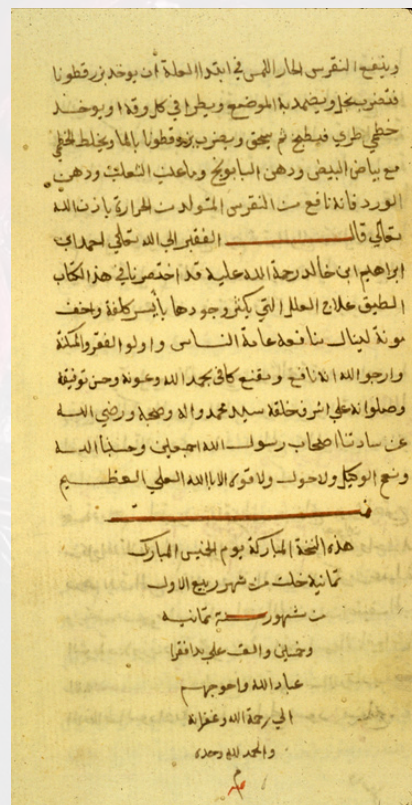 وينفع النقرس الحار اللمس في ابتدا العلة أن يوخد بزرقطونا
فتضرب بخل ويضمد به الموضع ويطرا في كل وقت او يوخد
خطمي طري فيطبخ ثم يسحق ويضرب بزرقطونا بالما ويخلط الخطمي
مع بياض البيض ودهن البابونج وما عنب الثعلب ودهن
الورد فانه نافع من النقرس المتولد من الحرارة باذن الله
تعالي قال الفقير الي الله تعالي احمد ابن
ابراهيم ابن خالد رحمة الله عليه قد اختصرنا في هذا الكتاب
الطيق علاج العلل التي يكثر وجودها بأيسر كلفة واخف
مونة لينال منافعه عامة الناس واولو الفقر والمكنة
وارجو الله انه نافع ومقنع كافي بحمد الله وعونه وحسن توفيقه
وصلواته علي اشرف خلقه سيد محمد واله وصحبه ورضي الله
عن سادتنا اصحاب رسول الله اجمعين وحسبنا الله
ونعم الوكيل ولا حول ولا قوة الا باالله العلي العظيم
تمت
هذه النسخة المباركة يوم الخميس المبارك
ثمانية خلت من شهور ربيع الاول
من شهور سنة ثمانيه
وخمسين والف علي يد افقرا
عباد الله واحوجهم
الي رحمة الله وغفرانه
والحمد لله وحده
م